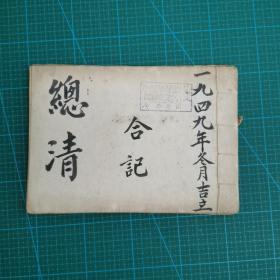 一九四九年冬月吉立
合記
總清